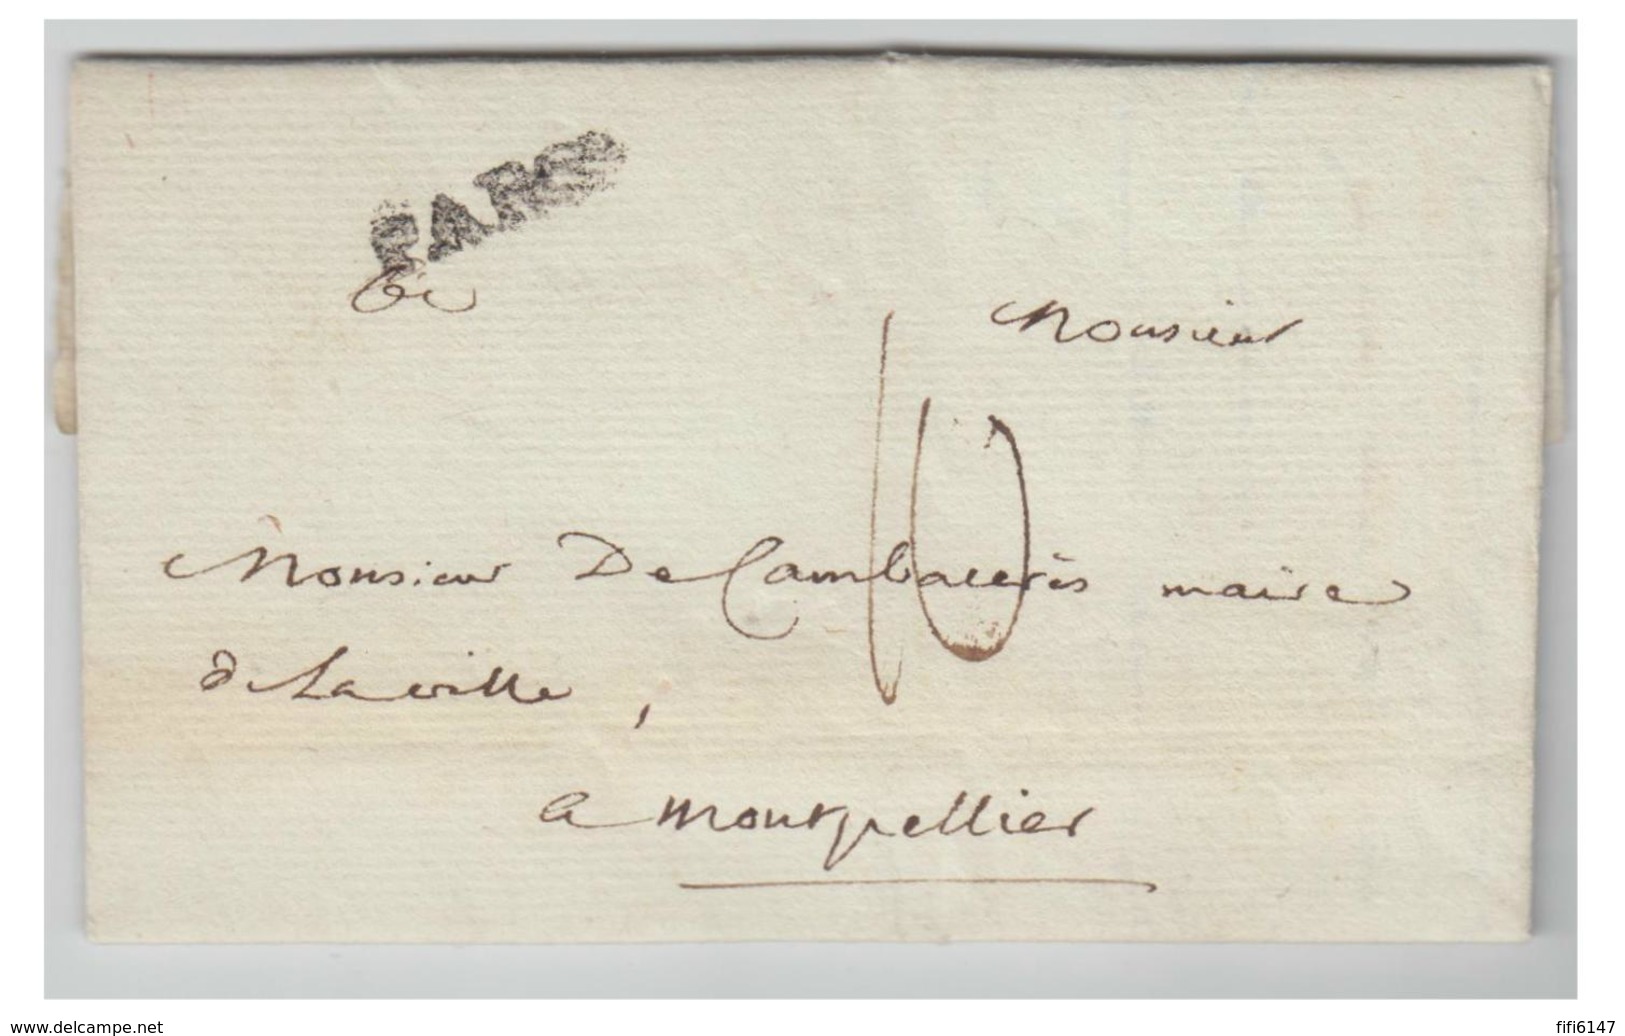 CARC
Monsieur
10
Monsieur De Cambacerès maire
de La ville,
a Montpellier
www.delcampe.net
fifi6147